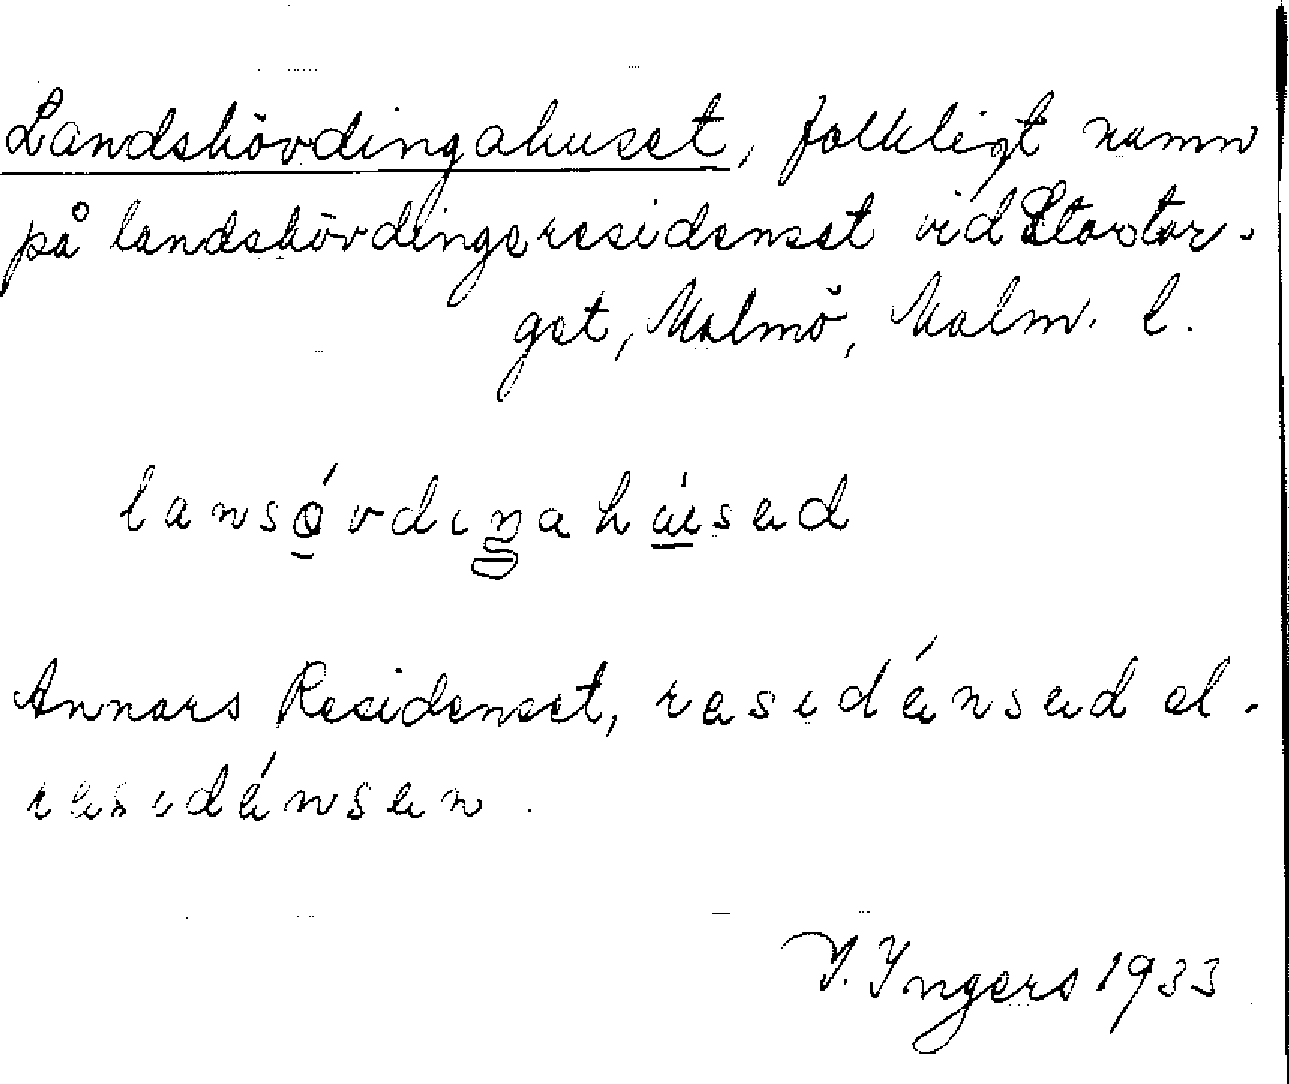 Landshövdingahuset, folkligt namn
på landshövdingeresidenset vid Stortor-
get, Malmö, Malm. l.
lansǿvdiŋahúsed
Annars Residenset, residénsed el.
residénsen.
I. Ingers 1933